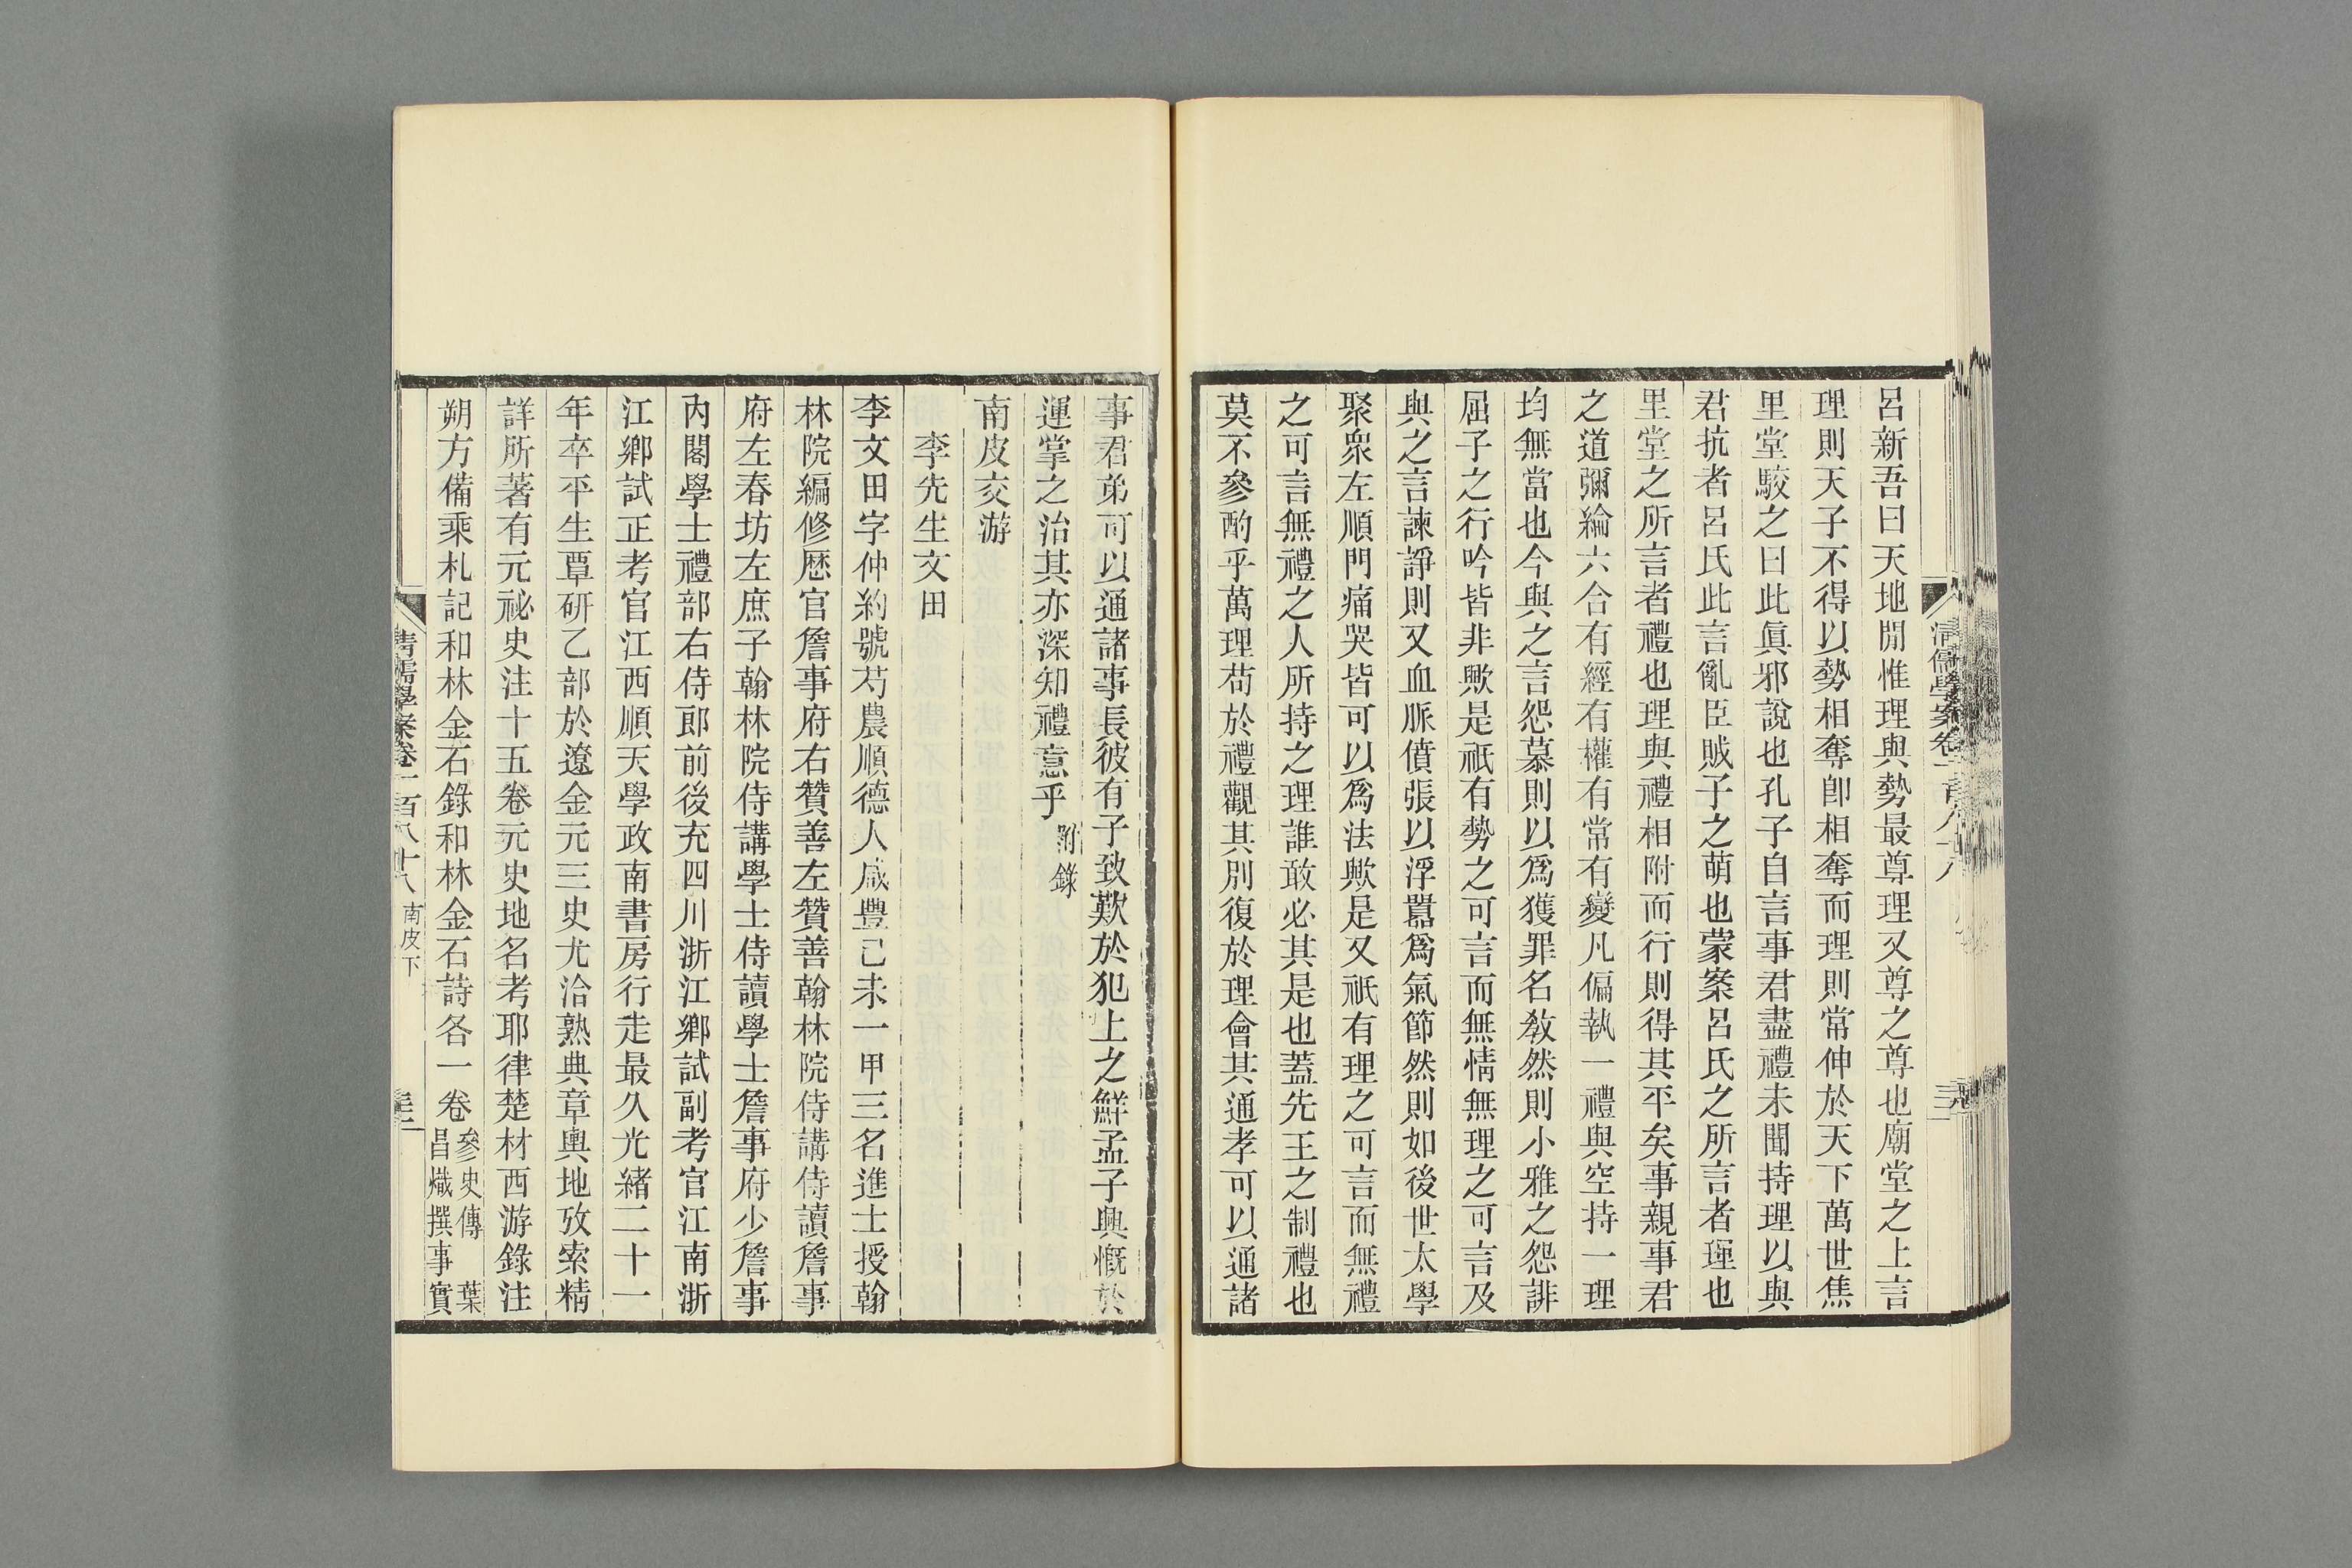 呂新吾曰天地閒惟理與勢最尊理又尊之尊也廟堂之上言
理則天子不得以勢相奪卽相奪而理則常伸於天下萬世焦
里堂駮之曰此眞邪說也孔子自言事君盡禮未聞持理以與
君抗者呂氏此言亂臣賊子之萌也蒙案呂氏之所言者理也
里堂之所言者禮也理與禮相附而行則得其平矣事親事君
之道彌綸六合有經有權有常有變凡偏執一禮與空持一理
均無當也今與之言怨慕則以爲獲罪名敎然則小雅之怨誹
屈子之行吟皆非歟是祇有勢之可言而無情無理之可言及
與之言諫諍則又血脈僨張以浮囂爲氣節然則如後世太學
聚衆左順門痛哭皆可以爲法歟是又祇有理之可言而無禮
之可言無禮之人所持之理誰敢必其是也蓋先王之制禮也
莫不參酌乎萬理苟於禮觀其別復於理會其通孝可以通諸
事君弟可以通諸事長彼有子致歎於犯上之鮮孟子興慨於
運掌之治其亦深知禮意乎附錄
南皮交游
李先生文田
李文田字仲約號芍農順德人咸豐己未一甲三名進士授翰
林院編修歷官詹事府右贊善左贊善翰林院侍講侍讀詹事
府左春坊左庶子翰林院侍講學士侍讀學士詹事府少詹事
內閣學士禮部右侍郎前後充四川浙江鄉試副考官江南浙
江鄉試正考官江西順天學政南書房行走最久光緒二十一
年卒平生覃研乙部於遼金元三史尤洽熟典章輿地攷索精
詳所著有元祕史注十五卷元史地名考耶律楚材西游錄注
朔方備乘札記和林金石錄和林金石詩各一卷參史傳 葉
昌熾撰事實
清儒學案卷一百八十八 南皮下